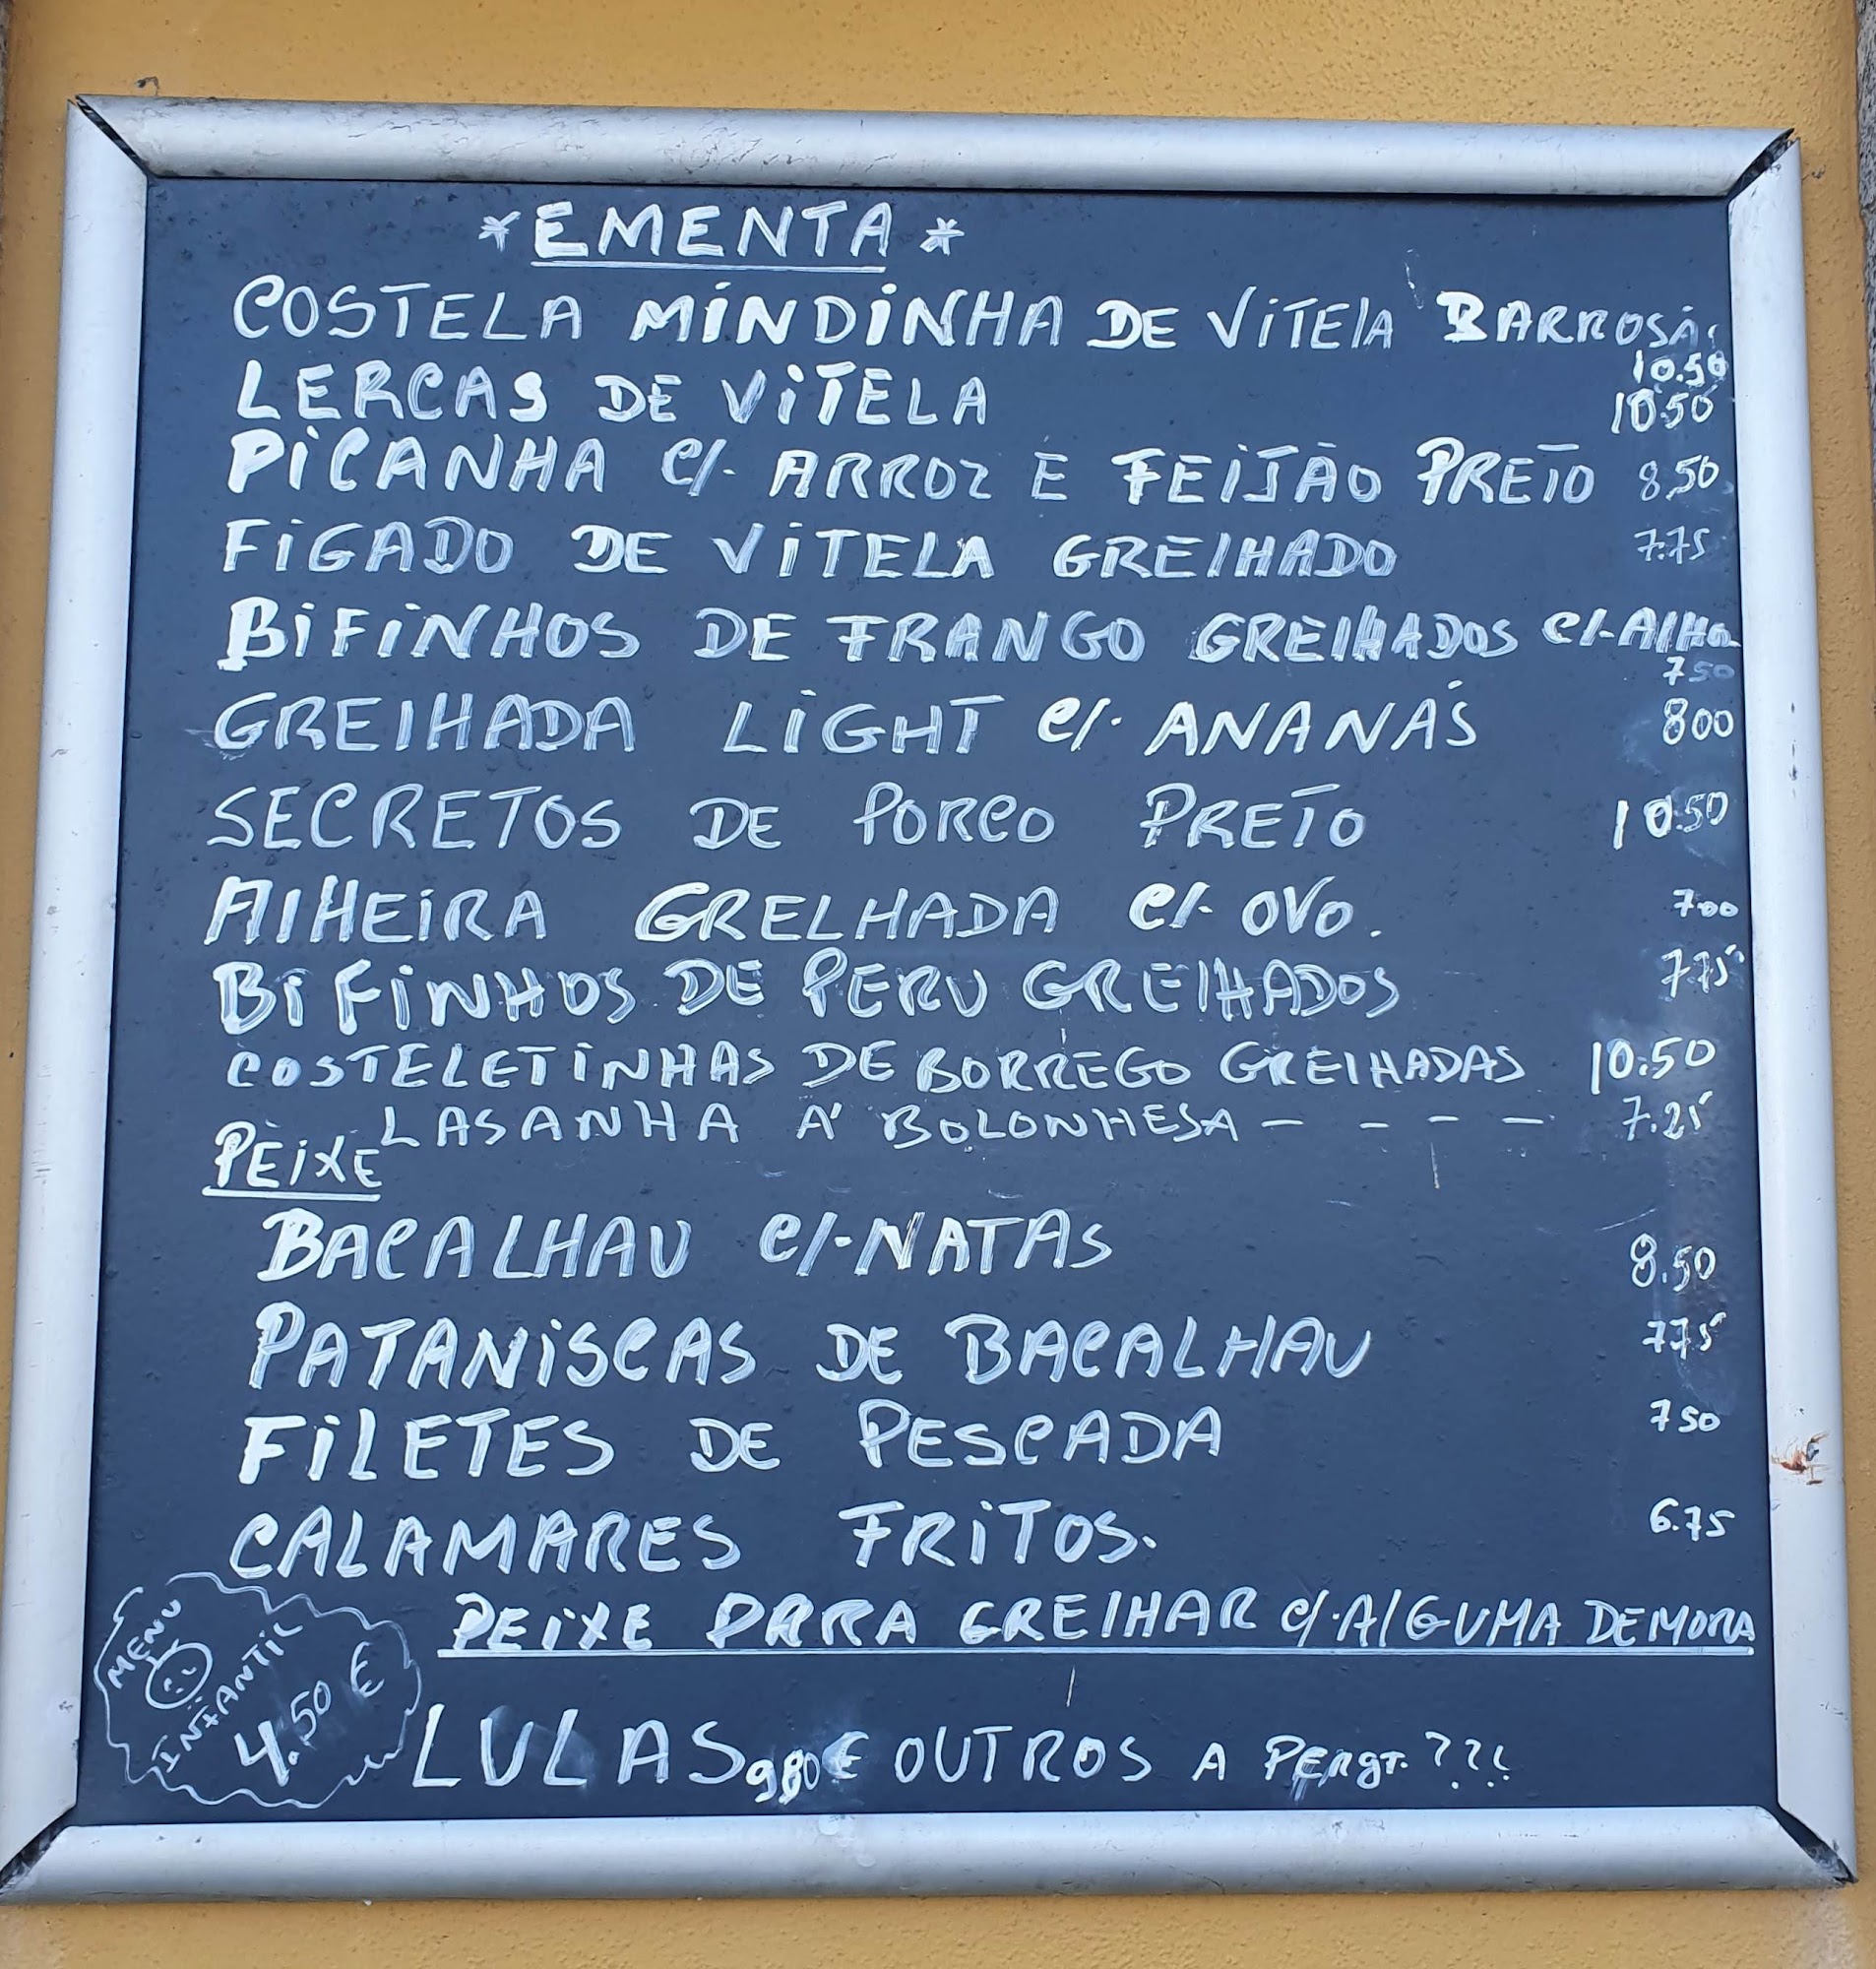 * EMENTA *
COSTELA MINDINHA DE VITELA BARROSÃ
10.50
LERCAS DE VITELA 10.50
PICANHA C/. ARROZ E FEIJÃO PRETO 8,50
FIGADO DE VITELA GRELHADO 7.75
BIFINHOS DE FRANGO GRELHADOS C/. ALHO
750
GRELHADA LIGHT C/. ANANÁS 800
SECRETOS DE PORCO PRETO 10.50
ALHEIRA GRELHADA C/. OVO. 7.00
BIFINHOS DE PERU GRELHADOS 7.75
COSTELETINHAS DE BORREGO GRELHADAS 10.50
LASANHA À BOLONHESA - - - - 7.25
PEIXE
BACALHAU C/. NATAS 8.50
PATANISCAS DE BACALHAU 775
FILETES DE PESCADA 750
CALAMARES FRITOS. 6.75
PEIXE PARA GRELHAR C/. ALGUMA DEMORA
LULAS 980€ OUTROS A PERGT. ???
MENU
INFANTIL
4.50 €